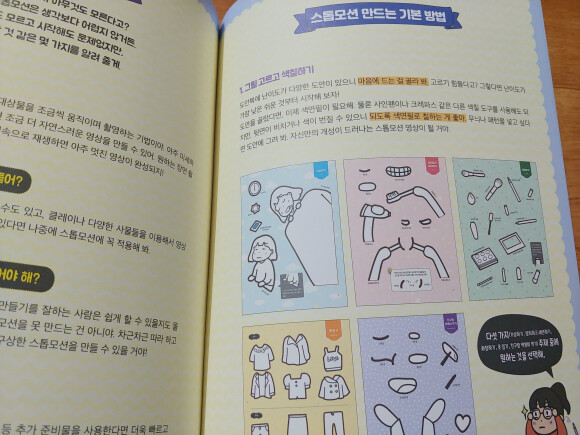 아무것도 모른다고?
톱모션은 생각보다 어렵지 않거든.
모르고 시작해도 문제없지만,
것 같은 몇 가지를 알려 줄게.
대상물을 조금씩 움직이며 촬영하는 기법이야. 아주 미세하
조금 더 자연스러운 영상을 만들 수 있어. 원하는 장면
속으로 재생하면 아주 멋진 영상이 완성되지!
들어?
수도 있고, 클레이나 다양한 사물들을 이용해서 영상
있다면 나중에 스톱모션에 꼭 적용해 봐.
어야 해?
만들기를 잘하는 사람은 쉽게 할 수 있을지도 몰
모션을 못 만드는 건 아니야. 차근차근 따라 하고
구상한 스톱모션을 만들 수 있을 거야!
등 추가 준비물을 사용한다면 더욱 빠르고
스톱모션 만드는 기본 방법
1. 그림 고르고 색칠하기
도안북에 난이도가 다양한 도안이 있으니 마음에 드는 걸 골라 봐. 고르기 힘들다고? 그렇다면 난이도가
가장 낮은 쉬운 것부터 시작해 보자!
도안을 골랐다면, 이제 색연필이 필요해. 물론 사인펜이나 크레파스 같은 다른 색칠 도구를 사용해도 되
지만, 뒷면이 비치거나 색이 번질 수 있으니 되도록 색연필로 칠하는 게 좋아. 무늬나 패턴을 넣고 싶다
면 도안에 그려 봐. 자신만의 개성이 드러나는 스톱모션 영상이 될 거야.
다섯 가지
주제 중에
원하는 것을 선택해.